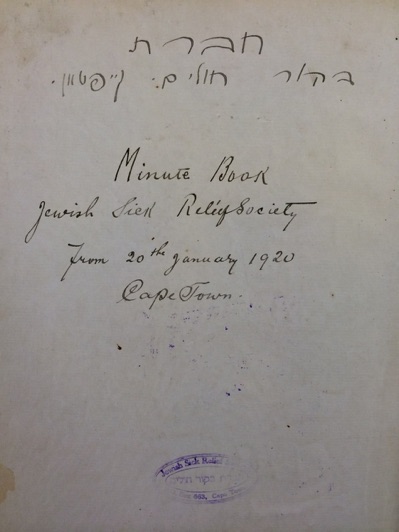 חברת
בקור חולים קייפטאון.
Minute Book
Jewish Sick Relief Society
From 20th January 1920
Cape Town.
Jewish Sick Relief
בקור חולים
Box 693, Cape